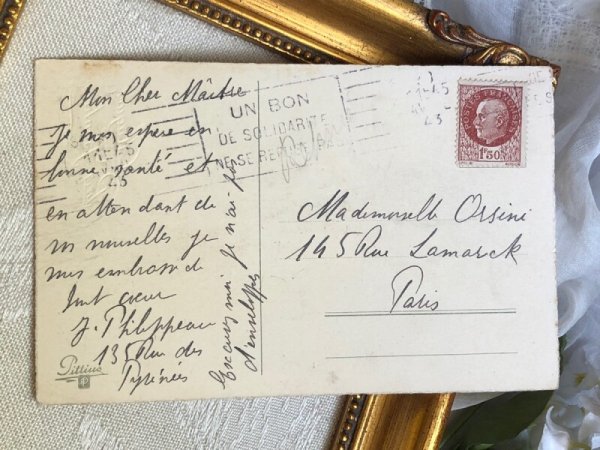 Mon Cher Maître
Je vous espère en
bonne santé et
en attendant de
vos nouvelles je
vous embrasse de
tout cœur
J. Philippeau
135 Rue des
Pyrénées
Excusez moi je n'ai pas
d'enveloppes
UN BON
DE SOLIDARITÉ
NE SE REFUSE PAS
POSTES FRANÇAISES
1F50
Mademoiselle Orsini
145 Rue Lamarck
Paris